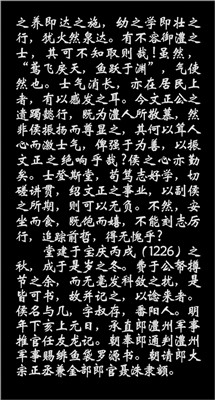 之养即达之施，幼之学即壮之
行，犹火然泉达。有不容御澧之
士，其可不知取则哉！虽然，
“鸢飞戾天，鱼跃于渊”，气使
然也。士气消长，亦在居民上
者，有以感发之耳。今文正公之
遗躅懿行，既为澧人所敬慕，然
非侯振扬而尊显之，其何以耸人
心而激士气，俾强于为善，以振
文正之绝响乎哉？侯之心亦勤
矣。士登斯堂，苟笃志好学，切
磋讲贯，绍文正之事业，以副侯
之所期，则可以无负。不然，安
坐而食，既饱而嬉，不能刻志厉
行，追踪前哲，得无愧乎？
堂建于宝庆丙戌（1226）之
秋，成于是岁之冬。费于公帑撙
节之余，而无毫发科敛之扰，是
皆可书，故并记之，以谂来者。
侯名与几，字叔存，番阳人。明
年下亥上元日，承直郎澧州军事
推官任友龙记。朝奉郎通判澧州
军事赐绯鱼袋罗源书。朝请郎大
宗正丞兼金部郎官聂洙隶额。